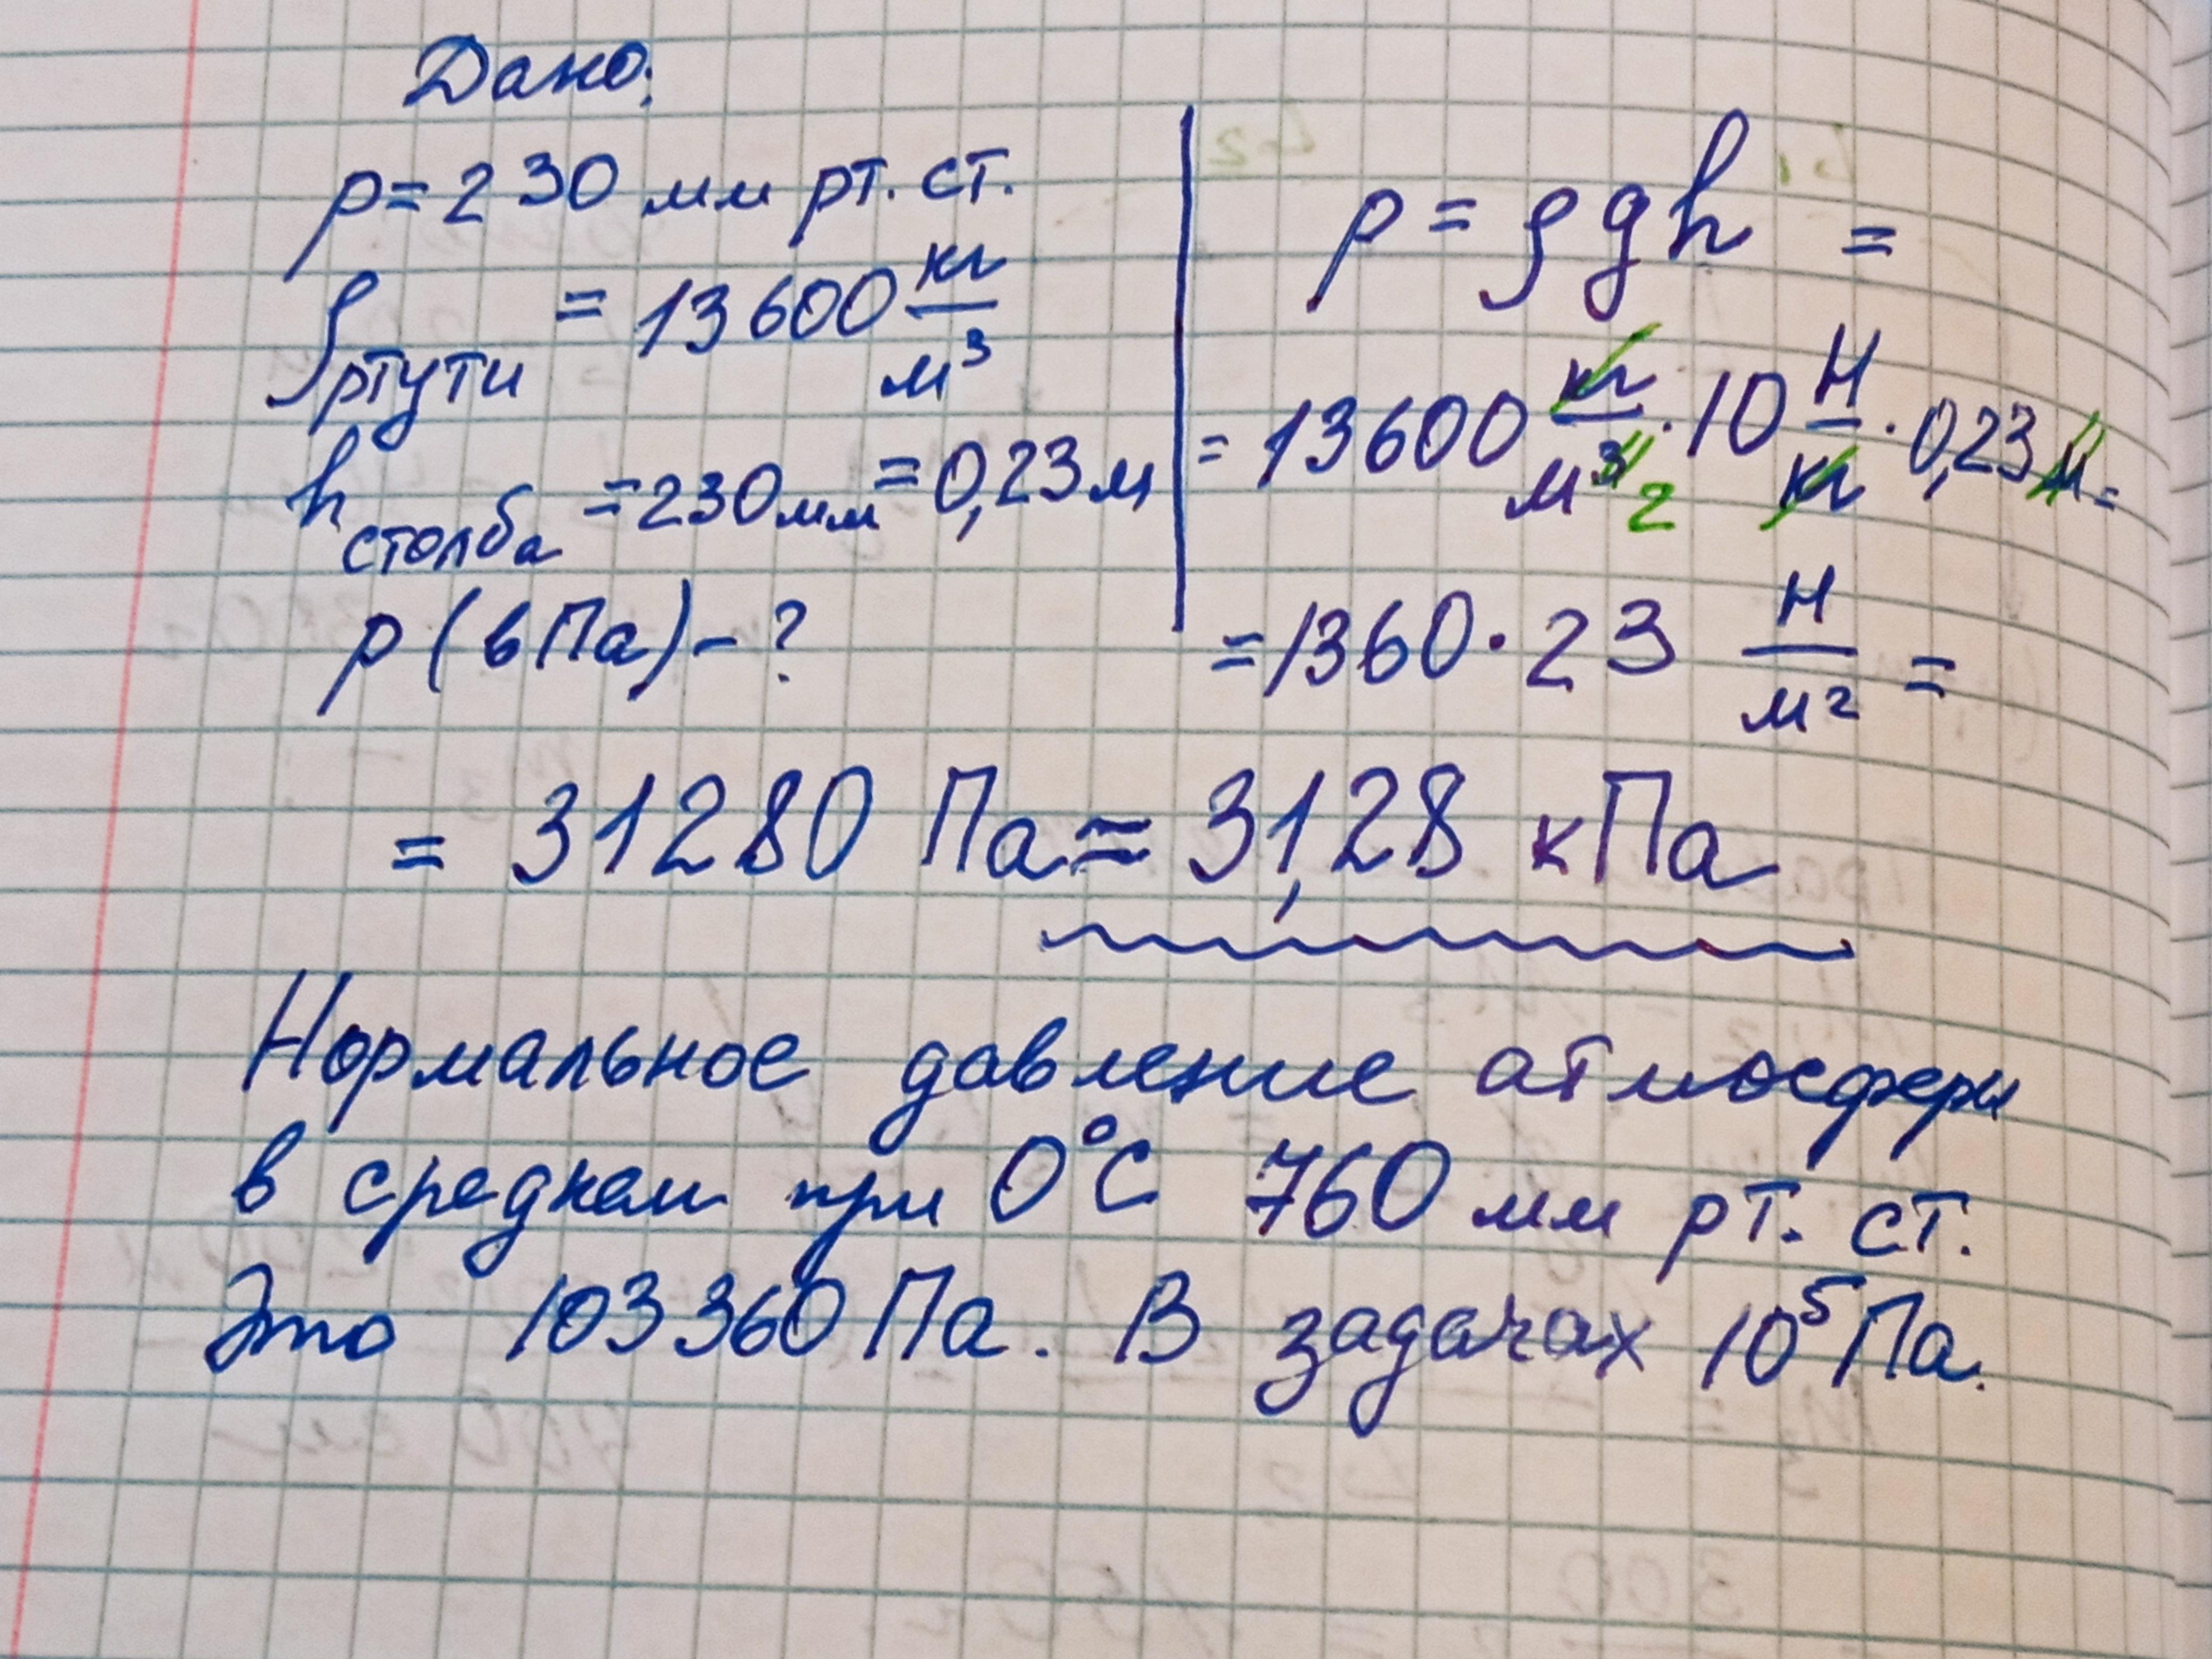 Дано:
p = 230 мм рт. ст.
ρ ртути = 13600 кг/м³
h столба = 230 мм = 0,23 м
p (в Па) - ?
p = ρgh =
= 13600 кг/м³ 2 · 10 Н/кг · 0,23 м =
= 1360 · 23 Н/м² =
= 31280 Па ≈ 31,28 кПа
Нормальное давление атмосферы
в среднем при 0°C 760 мм рт. ст.
Это 103360 Па. В задачах 10⁵ Па.